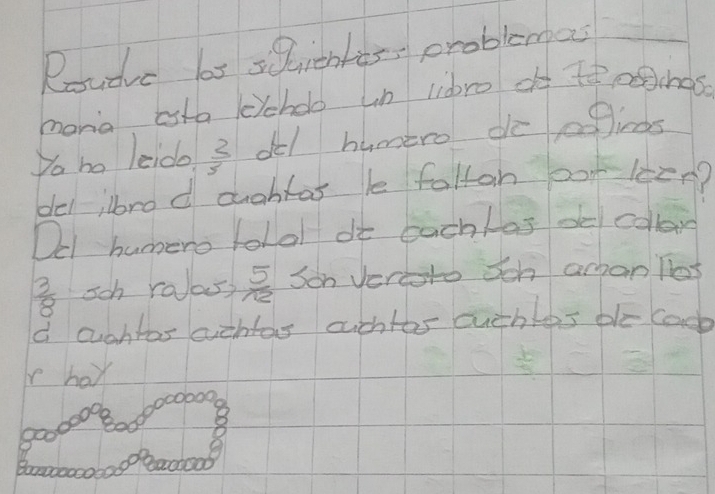 Resuelve los siguientes problemas
maria esta leyehdo un libro de 72 pagihas.
Ya ha leido del humero de paginas
del libro d cuahtas le faltan por leer?
Del humero total de cuehtas del collar
3/8 soh rojas, 5/12 Soh y soh amarillas
d cuahtas cuehtas cuehtas cuehtas de
r hay